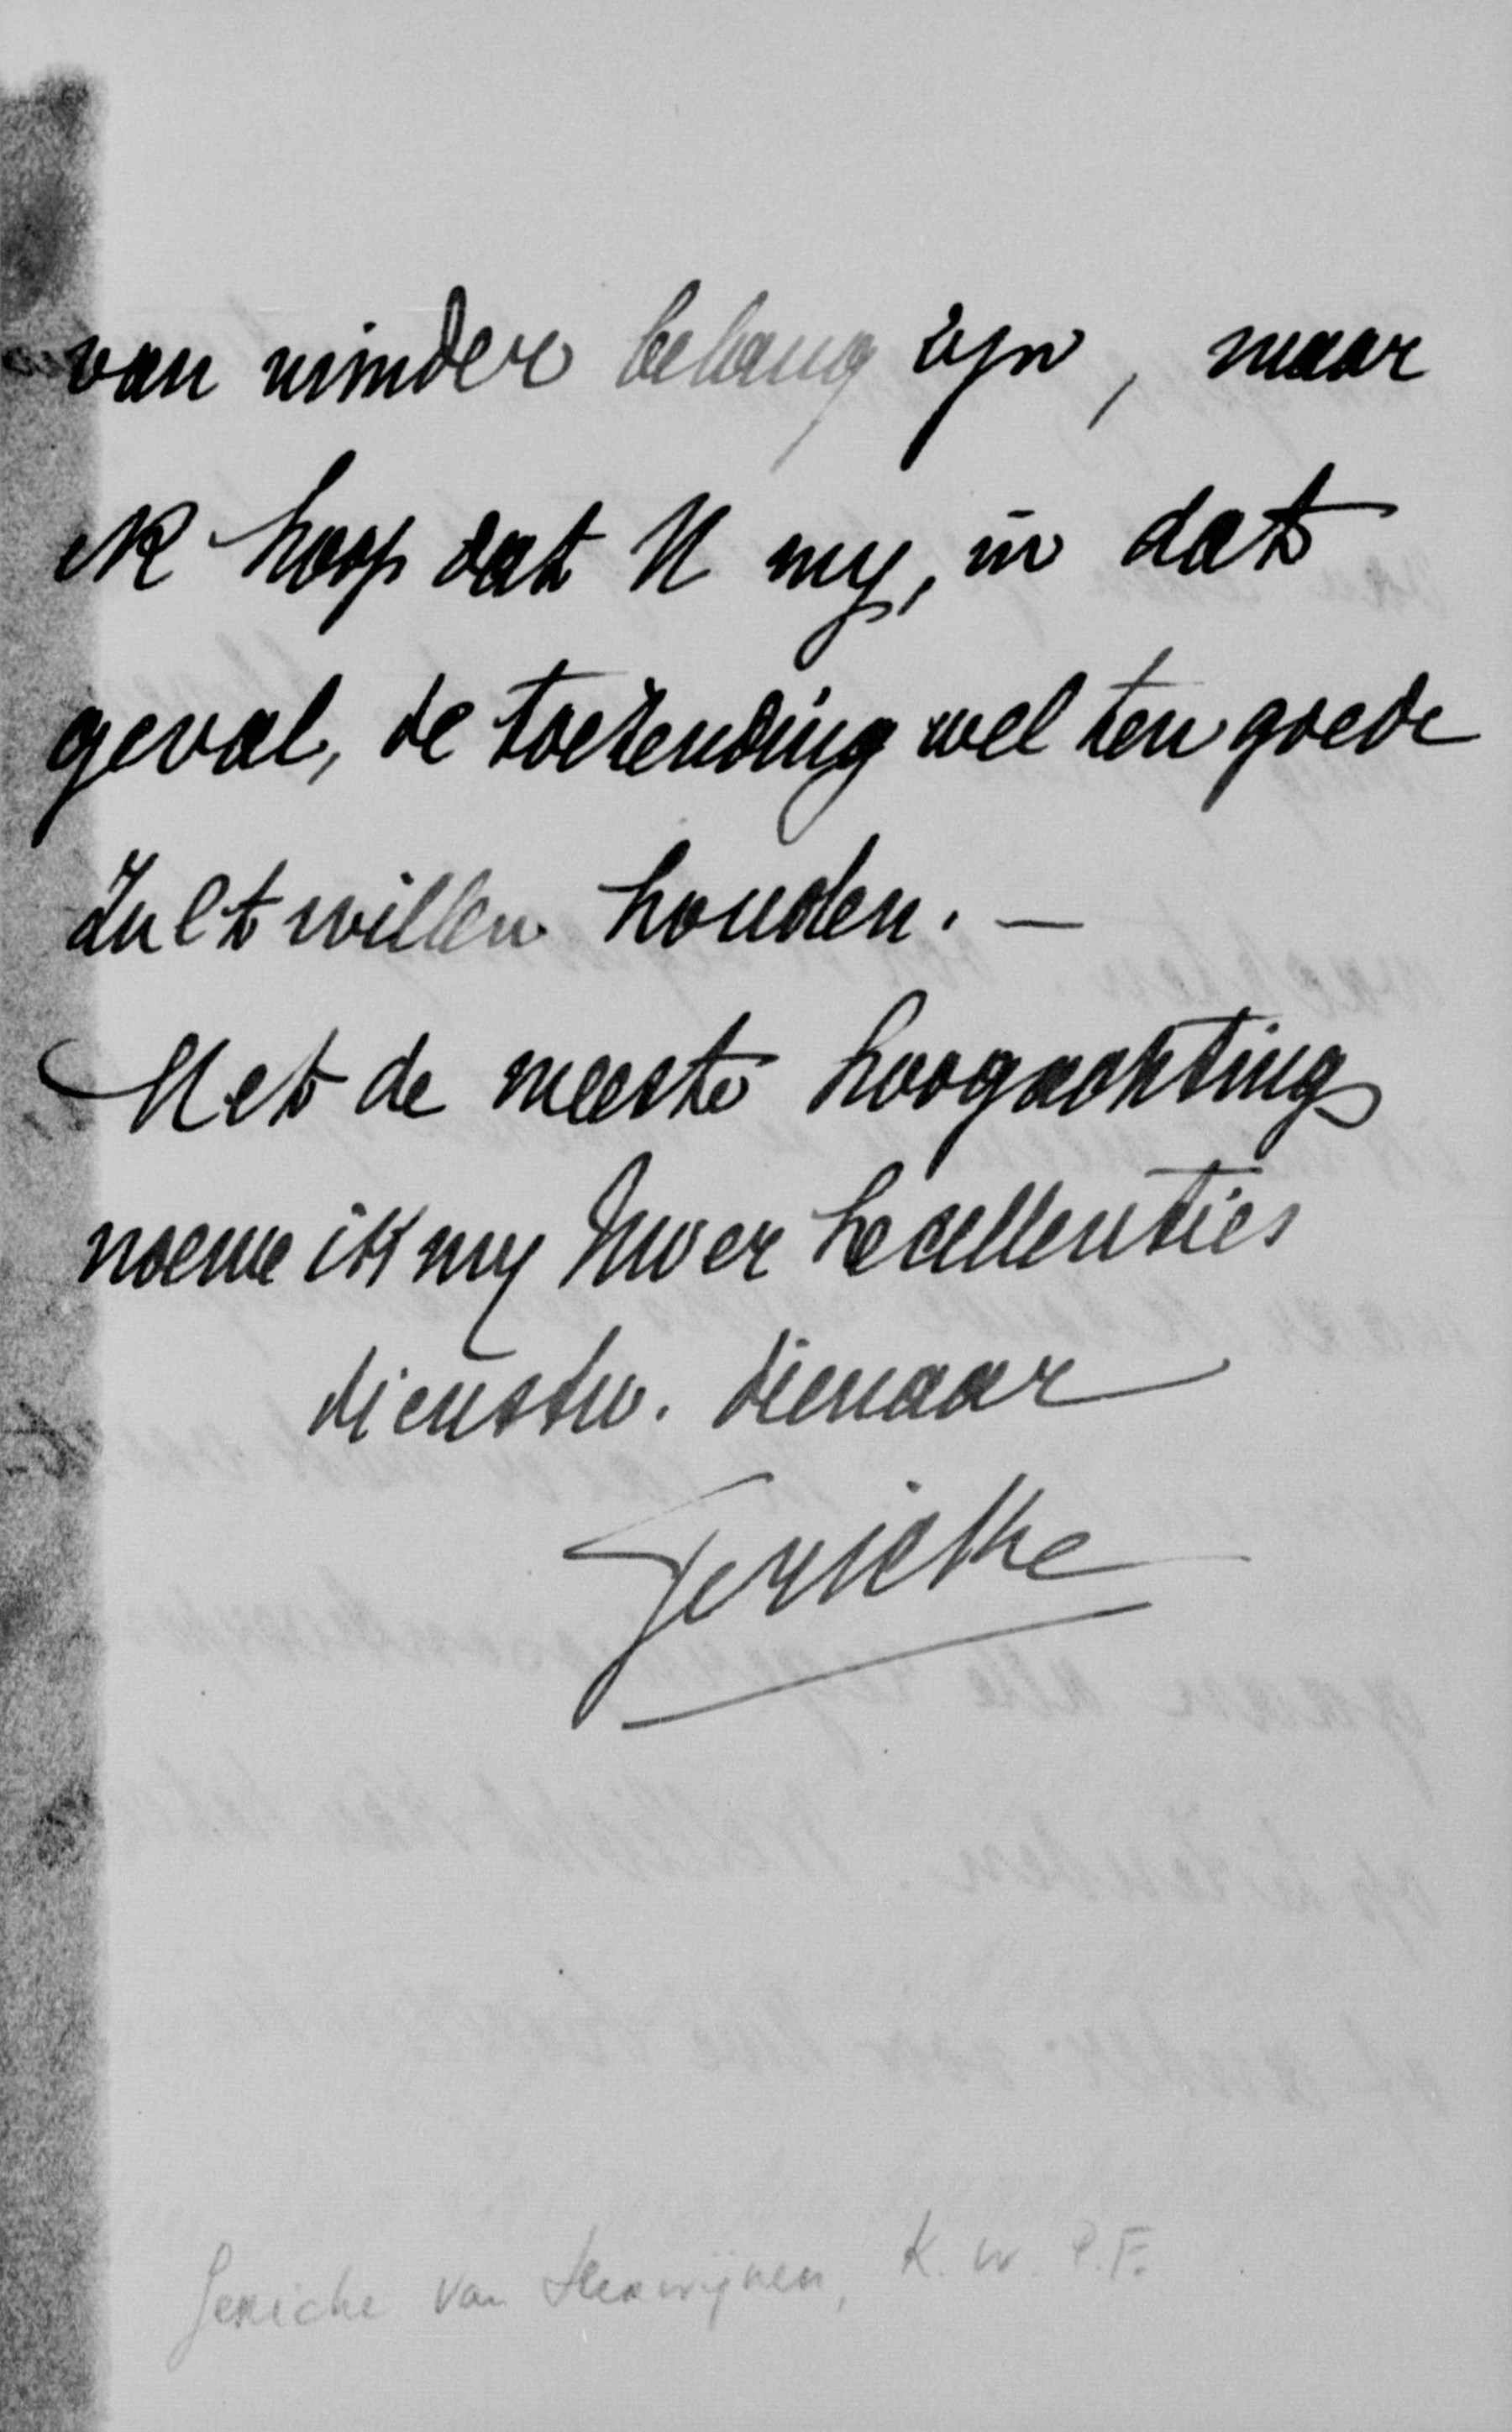 van minder belang zijn, maar
ik hoop dat U my, in dat
geval, de toezending wel ten goede
zult willen houden. —
Met de meeste hoogachting
noeme ik my Uwer Excellenties
dienstw. dienaar
Gericke
Gericke van Herwijnen, K. W. P. F.